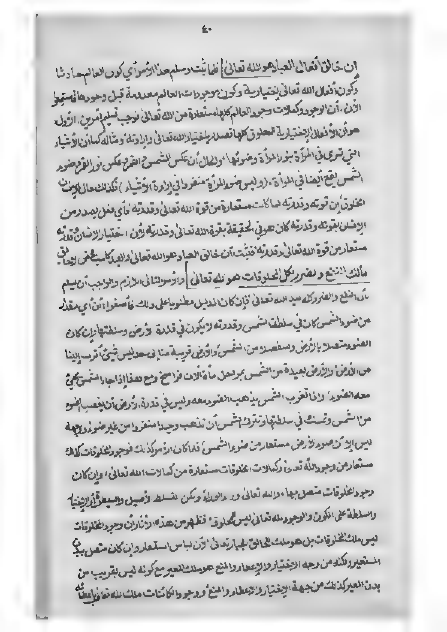 ٤٠
ان خالق أفعال العباد هو الله تعالى فلما ثبت وسلم هذا الأمر أي كون العالم حادثا
وكون أفعال الله تعالى إختيارية وكون موجودات العالم معدومة قبل وجودها
الأول أن الوجود وكمالات وجود العالم كلها مستعارة من الله تعالى وجب تسليم أمرين الأول
هو أن الأفعال الإختيارية للمخلوق كلها تصدر باختيار الله تعالى وإرادته ومثاله كما أن الأشياء
التي ترى في المرآة بنور المرآة وضوئها والحال أن عكس الشمس القمر عكس نور القمر وضوء
الشمس يقع أيضا في المرآة وليس ضوء المرآة منفردا في إراءة الأشياء فكذلك أفعال الإنسان
المخلوق أن قوته وقدرته لما كانت مستعارة من قوة الله تعالى وقدرته فأي فعل يصدر من
الإنسان بقوته وقدرته كان هو في الحقيقة بقوة الله تعالى وقدرته لأن اختيار الإنسان وقدرته
مستعار من قوة الله تعالى وقدرته فثبت أن خالق العباد هو الله تعالى والعبد كاسب
مالك النفع والضرر لكل المخلوقات هو الله تعالى والأمر الثاني اللازم والواجب أن يسلم
بأن النفع والضرر كله بيد الله تعالى فإن كان الدليل مطلوبا على ذلك فأصغوا أن أي مقدار
من ضوء الشمس كان في سلطة الشمس وقدرته لا يكون في قدرة الأرض وسلطتها وإن كان
الضوء متصلا بالأرض ومنفصلا من الشمس والأرض قريبة منا في حد ليس شيئ أقرب إلينا
من الأرض والأرض بعيدة من الشمس بمراحل مآت آلاف فراسخ ومع هذا إذا جاء الشمس يجيئ
معه الضوء وإذا تغرب الشمس يذهب الضوء معه وليس في قدرة الأرض أن يغصب الضوء
من الشمس وتمسك في سلطتها وتترك الشمس أن تذهب وحدها منفردا من غير ضوء
ليس إلا أن ضوء الأرض مستعار من ضوء الشمس فلما كان الأمر كذلك فوجود المخلوقات كذلك
مستعار من وجود الله تعالى وكمالات المخلوقات مستعارة من كمالات الله تعالى وإن كان
وجود المخلوقات متصل بها والله تعالى وراء الوراء ولكن تسلط الأصيل
والسلطة على الكون والوجود لله تعالى ليس للمخلوق فظهر من هذه الآثار أن وجود المخلوقات
ليس ملك المخلوقات بل هو ملك للخالق مجازا تعالى لأن لباس المستعار وإن كان متصل ببدن
المستعير لكنه من وجه الإختيار والإعطاء والمنع هو ملك المعير مع كونه ليس بقريب من
بدن المعير كذلك من جهة الإختيار والإعطاء والمنع ووجود الكائنات ملك لله تعالى